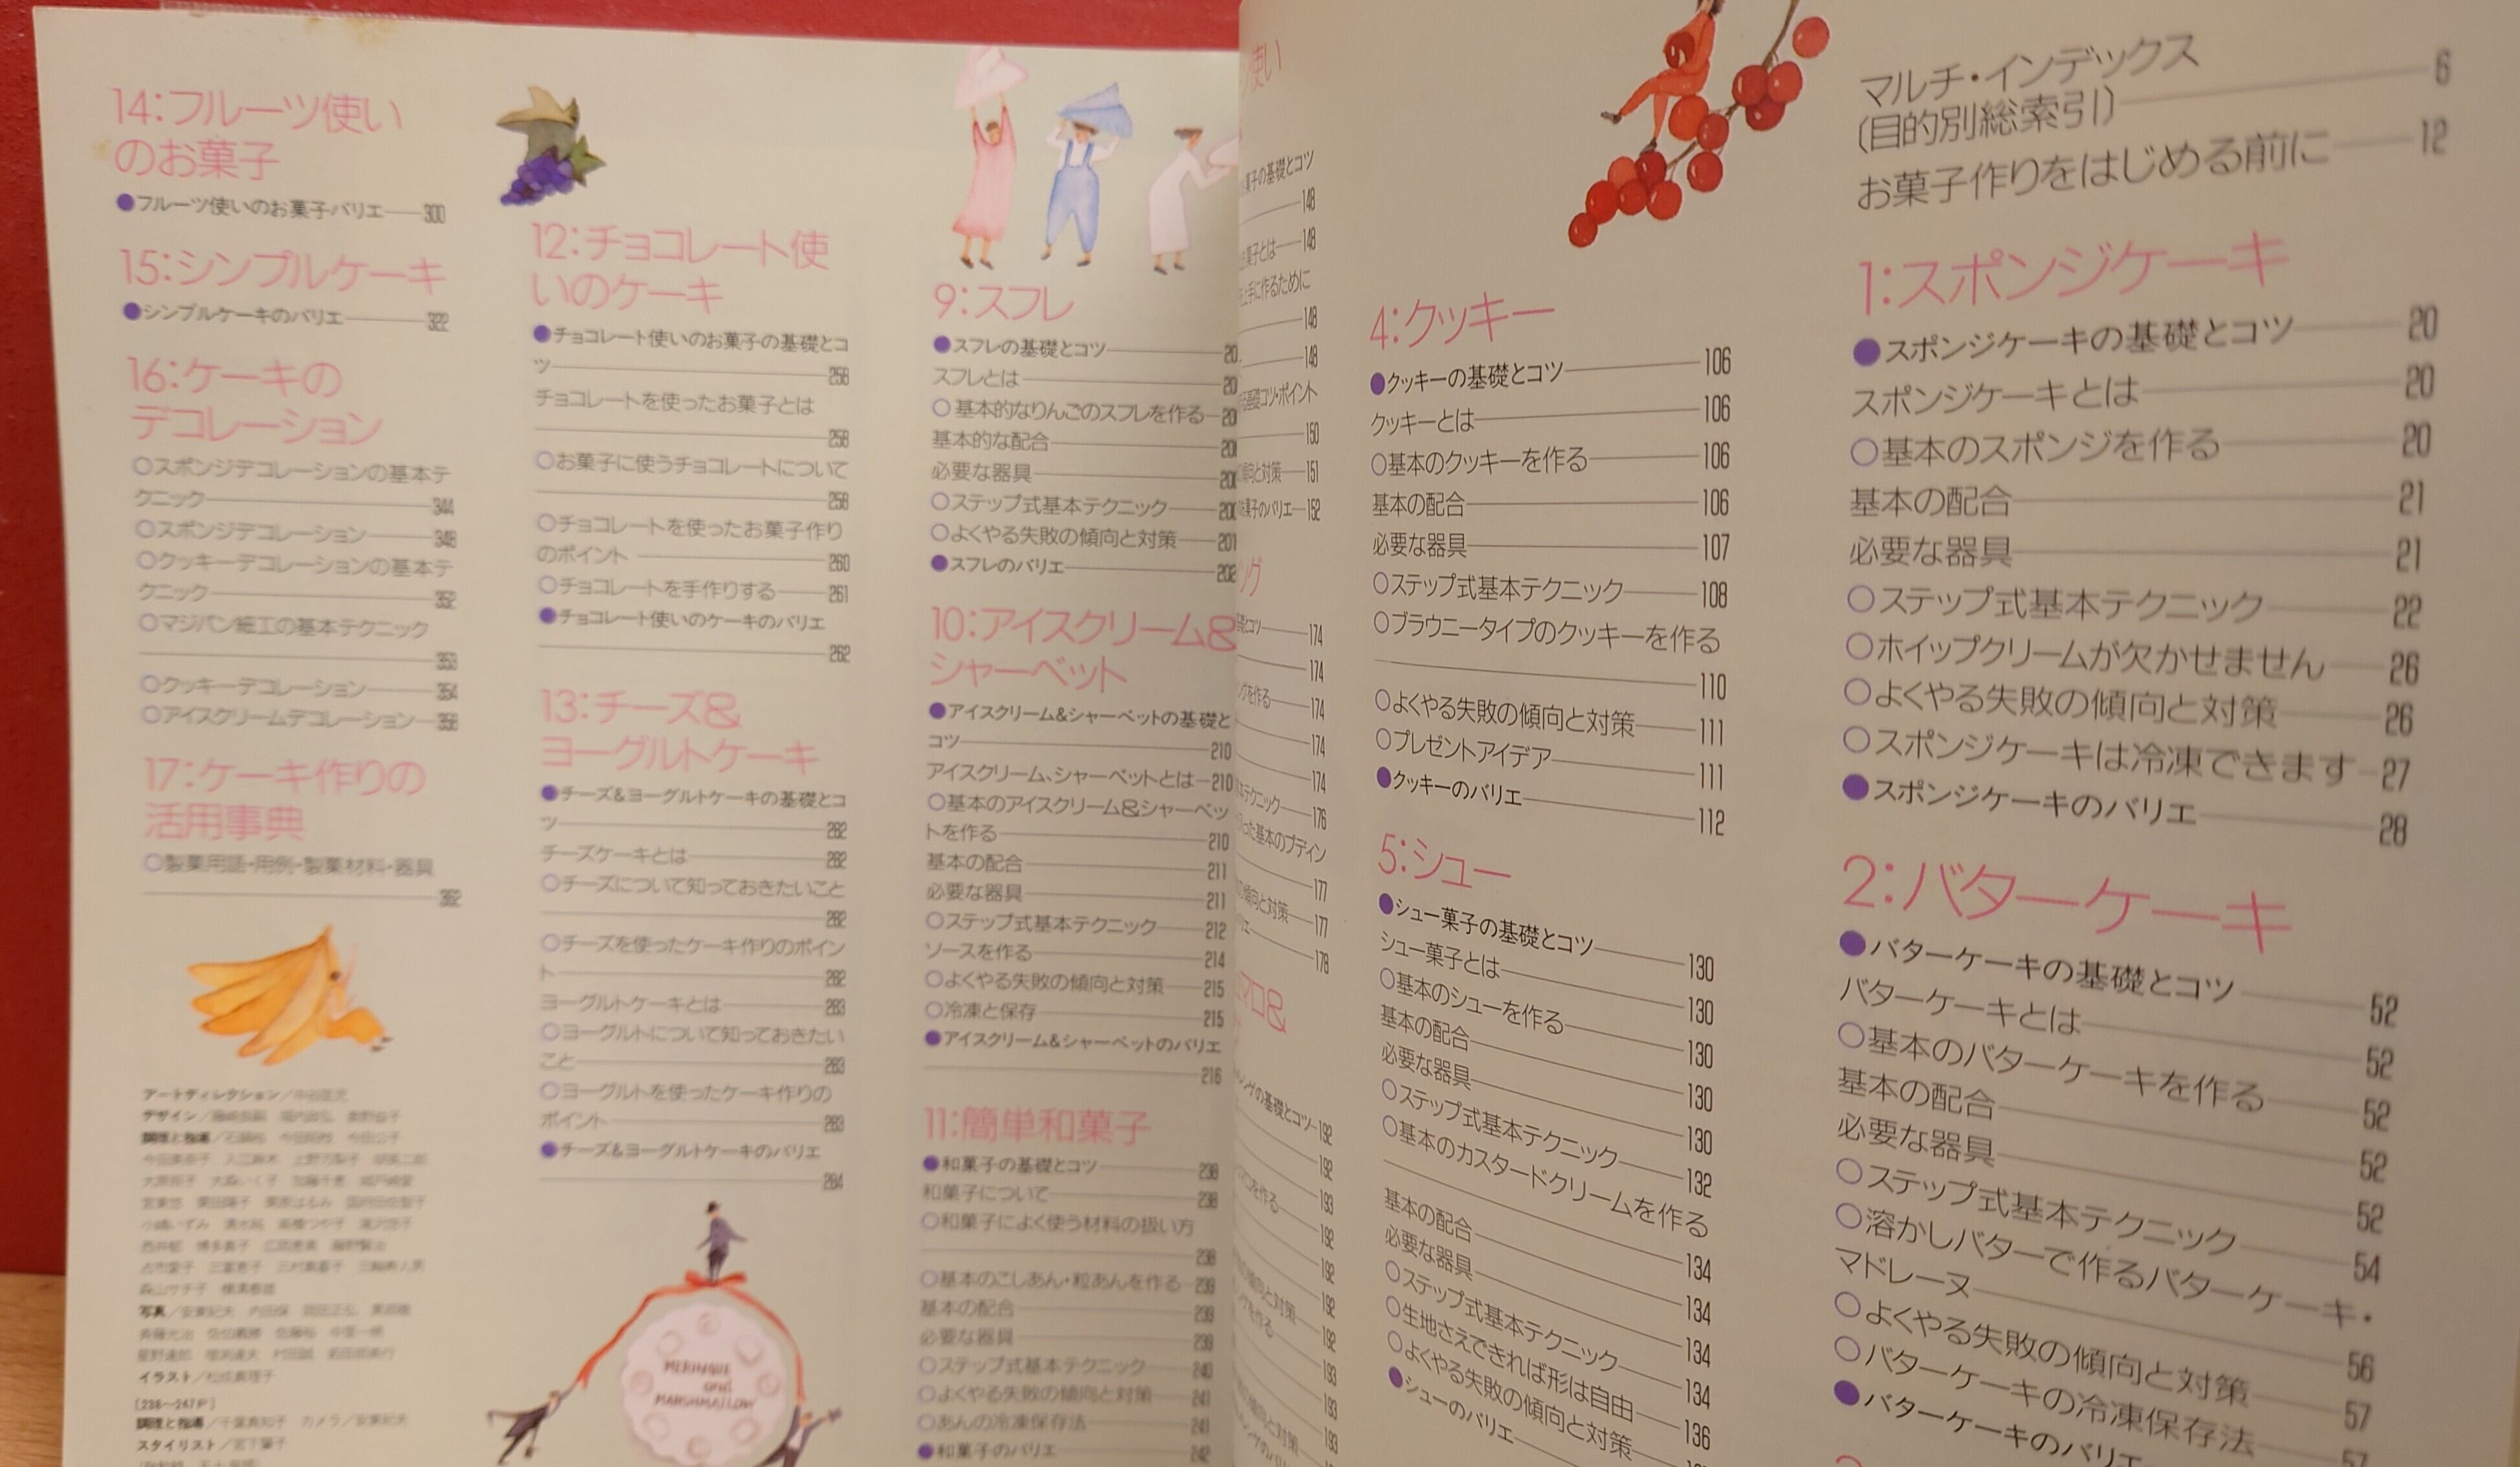 マルチ・インデックス
(目的別総索引) 6
お菓子作りをはじめる前に 12
1:スポンジケーキ
●スポンジケーキの基礎とコツ 20
スポンジケーキとは 20
○基本のスポンジを作る 20
基本の配合 21
必要な器具 21
○ステップ式基本テクニック 22
○ホイップクリームが欠かせません 26
○よくやる失敗の傾向と対策 26
○スポンジケーキは冷凍できます 27
●スポンジケーキのバリエ 28
2:バターケーキ
●バターケーキの基礎とコツ 52
バターケーキとは 52
○基本のバターケーキを作る 52
基本の配合 52
必要な器具 52
○ステップ式基本テクニック 54
○溶かしバターで作るバターケーキ・
マドレーヌ 56
○よくやる失敗の傾向と対策 57
○バターケーキの冷凍保存法 57
●バターケーキのバリエ
4:クッキー
●クッキーの基礎とコツ 106
クッキーとは 106
○基本のクッキーを作る 106
基本の配合 106
必要な器具 107
○ステップ式基本テクニック 108
○ブラウニータイプのクッキーを作る
110
○よくやる失敗の傾向と対策 111
○プレゼントアイデア 111
●クッキーのバリエ 112
5:シュー
●シュー菓子の基礎とコツ 130
シュー菓子とは 130
○基本のシューを作る 130
基本の配合 130
必要な器具 130
○ステップ式基本テクニック 132
○基本のカスタードクリームを作る
134
基本の配合 134
必要な器具 134
○ステップ式基本テクニック 134
○生地さえできれば形は自由 136
○よくやる失敗の傾向と対策
●シューのバリエ
使い
菓子の基礎とコツ
148
菓子とは 148
上手に作るために
148
148
コツ・ポイント
150
傾向と対策 151
菓子のバリエ 152
174
174
グを作る 174
174
174
テクニック 176
った基本のプディン
177
傾向と対策 177
178
マロ&
の基礎とコツ 192
192
193
192
192
192
193
193
193
9:スフレ
●スフレの基礎とコツ
スフレとは
○基本的なりんごのスフレを作る
基本的な配合
必要な器具
○ステップ式基本テクニック
○よくやる失敗の傾向と対策 201
●スフレのバリエ 202
10:アイスクリーム&
シャーベット
●アイスクリーム&シャーベットの基礎と
コツ 210
アイスクリーム、シャーベットとは 210
○基本のアイスクリーム&シャーベッ
トを作る 210
基本の配合 211
必要な器具 211
○ステップ式基本テクニック 212
ソースを作る 214
○よくやる失敗の傾向と対策 215
○冷凍と保存 215
●アイスクリーム&シャーベットのバリエ
216
11:簡単和菓子
●和菓子の基礎とコツ 238
和菓子について 238
○和菓子によく使う材料の扱い方
238
○基本のこしあん・粒あんを作る 239
基本の配合 239
必要な器具 239
○ステップ式基本テクニック 240
○よくやる失敗の傾向と対策 241
○あんの冷凍保存法 241
●和菓子のバリエ 242
12:チョコレート使
いのケーキ
●チョコレート使いのお菓子の基礎とコ
ツ 258
チョコレートを使ったお菓子とは
258
○お菓子に使うチョコレートについて
258
○チョコレートを使ったお菓子作り
のポイント 260
○チョコレートを手作りする 261
●チョコレート使いのケーキのバリエ
262
13:チーズ&
ヨーグルトケーキ
●チーズ&ヨーグルトケーキの基礎とコ
ツ 282
チーズケーキとは 282
○チーズについて知っておきたいこと
282
○チーズを使ったケーキ作りのポイン
ト 282
ヨーグルトケーキとは 283
○ヨーグルトについて知っておきたい
こと 283
○ヨーグルトを使ったケーキ作りの
ポイント 283
●チーズ&ヨーグルトケーキのバリエ
284
MERINGUE
and
MARSHMALLOW
14:フルーツ使い
のお菓子
●フルーツ使いのお菓子バリエ 300
15:シンプルケーキ
●シンプルケーキのバリエ 322
16:ケーキの
デコレーション
○スポンジデコレーションの基本テ
クニック 344
○スポンジデコレーション 348
○クッキーデコレーションの基本テ
クニック 352
○マジパン細工の基本テクニック
353
○クッキーデコレーション 354
○アイスクリームデコレーション 358
17:ケーキ作りの
活用事典
○製菓用語・用例・製菓材料・器具
362
アートディレクション／
デザイン／
調理と指導／
写真／安東紀夫
イラスト／
[238〜247P]
調理と指導／千葉真知子 カメラ／安東紀夫
スタイリスト／宮下肇子